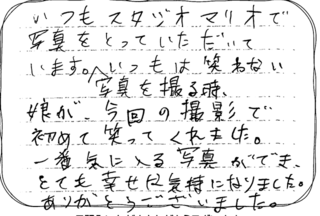 いつもスタジオマリオで
写真をとっていただいて
います。いつもは笑わない
写真を撮る時、
娘が、今回の撮影で
初めて笑ってくれました。
一番気に入る写真ができ、
とても幸せな気持になりました。
ありがとうございました。